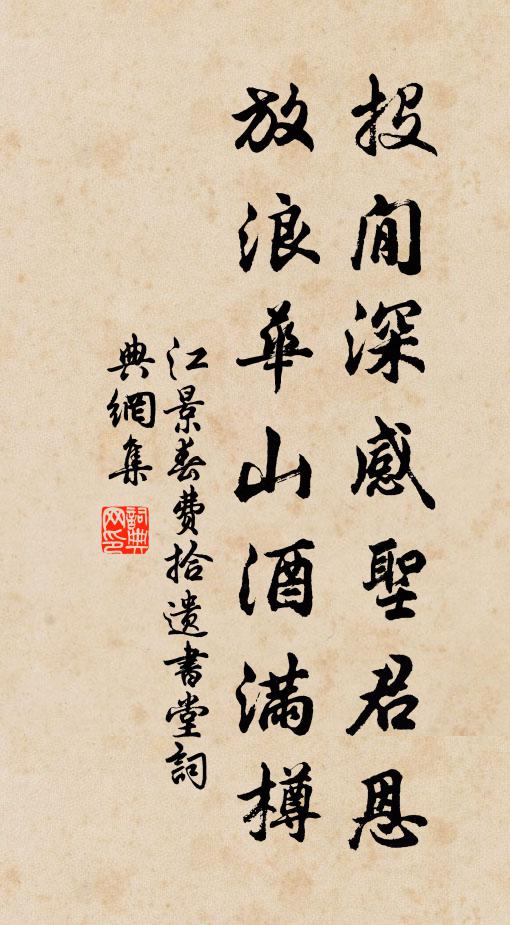 投閒深感聖君恩
放浪華山酒滿樽
江景春費拾遺書堂詞
典網集
詞典網印